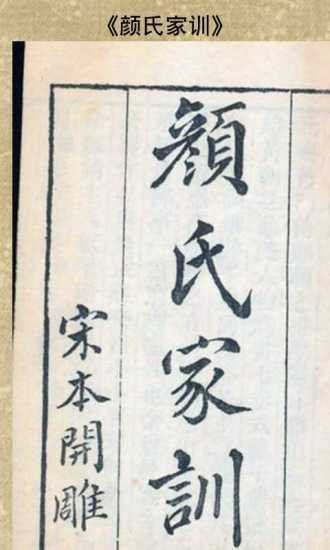 《颜氏家训》
顔氏家訓
宋本開雕